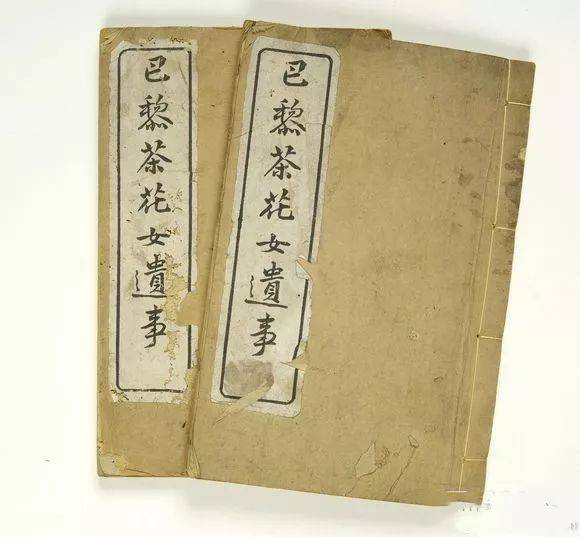 巴黎茶花女遺事
巴黎茶花女遺事